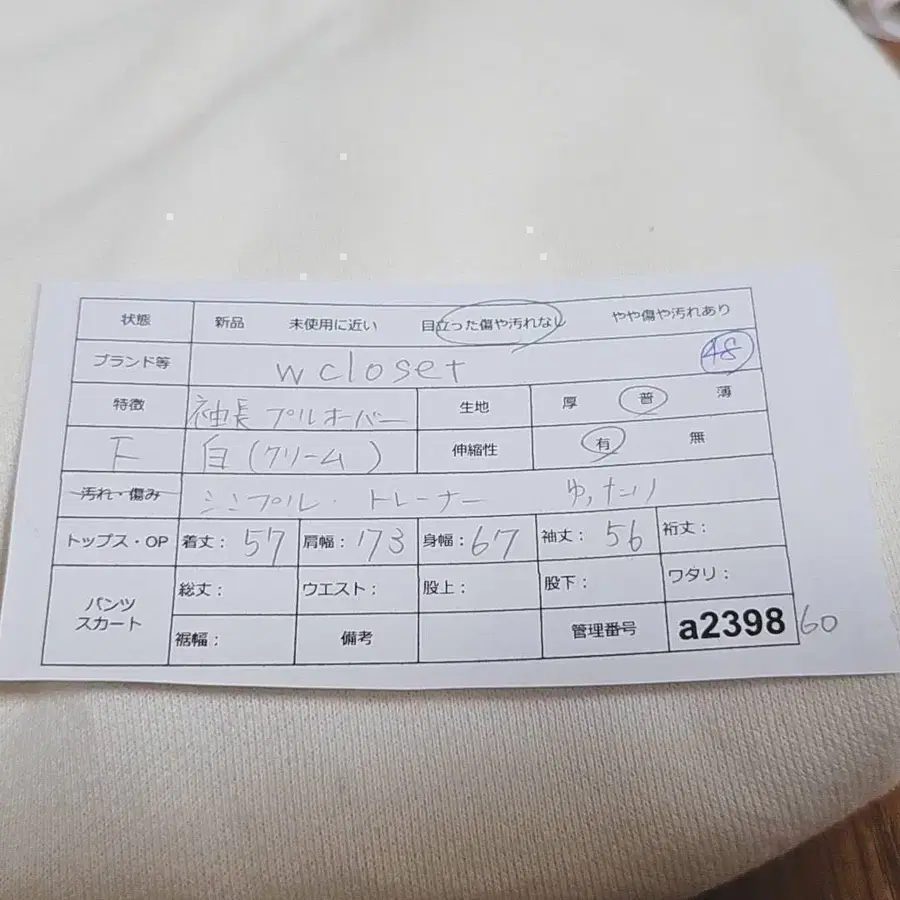 状態 新品 未使用に近い 目立った傷や汚れなし やや傷や汚れあり
ブランド等 w closet 48
特徴 袖長 プルオーバー 生地 厚 普 薄
F 白(クリーム) 伸縮性 有 無
汚れ・傷み シンプル・トレーナー ゆったり
トップス・OP 着丈: 57 肩幅: 173 身幅: 67 袖丈: 56 裄丈:
パンツ スカート 総丈: ウエスト: 股上: 股下: ワタリ:
裾幅: 備考 管理番号 a2398 60